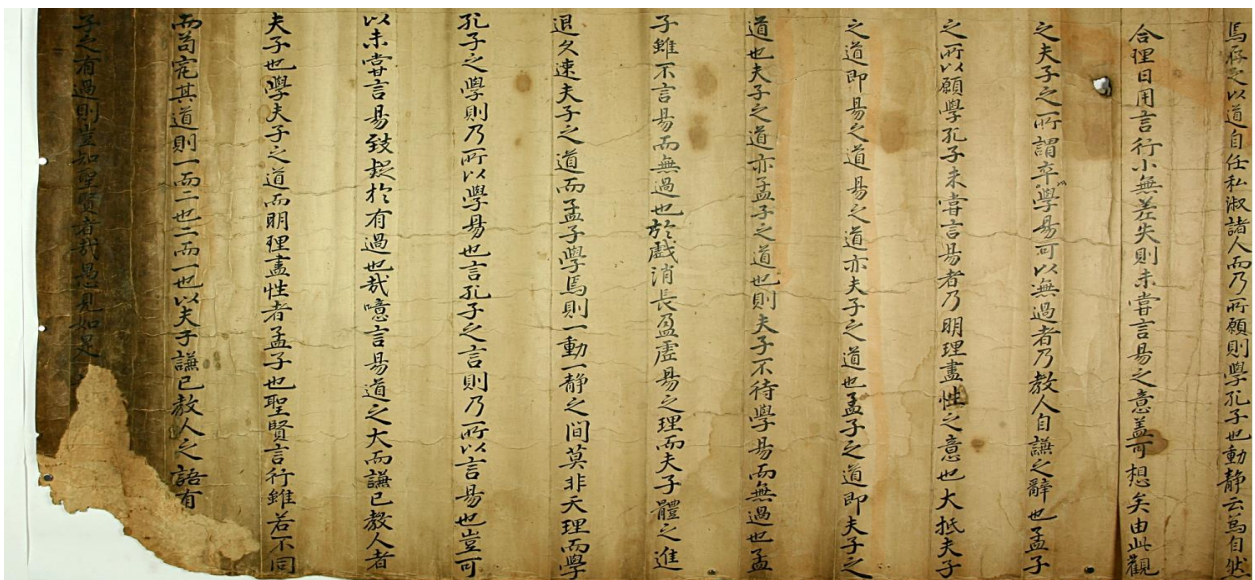 焉孱之以道自任私淑諸人而乃所願則學孔子也動靜云爲自然
合理日用言行小無差失則未嘗言易之意盖可想矣由此觀
之夫子之所謂卒學易可以無過者乃教人自謙之辭也孟子
之所以願學孔子未嘗言易者乃明理盡性之意也大抵夫子
之道即易之道易之道亦夫子之道也孟子之道即夫子之
道也夫子之道亦孟子之道也則夫子不待學易而無過也孟
子雖不言易而無過也於戲消長盈虛易之理而夫子體之進
退久速夫子之道而孟子學焉則一動一静之间莫非天理而學
孔子之學則乃所以學易也言孔子之言則乃所以言易也豈可
以未嘗言易致疑於有過也哉噫言易道之大而謙已教人者
夫子也學夫子之道而明理盡性者孟子也聖賢言行雖若不同
而苟究其道則一而二也二而一也以夫子謙已教人之語有
子之有過則豈知聖賢者哉愚見如是